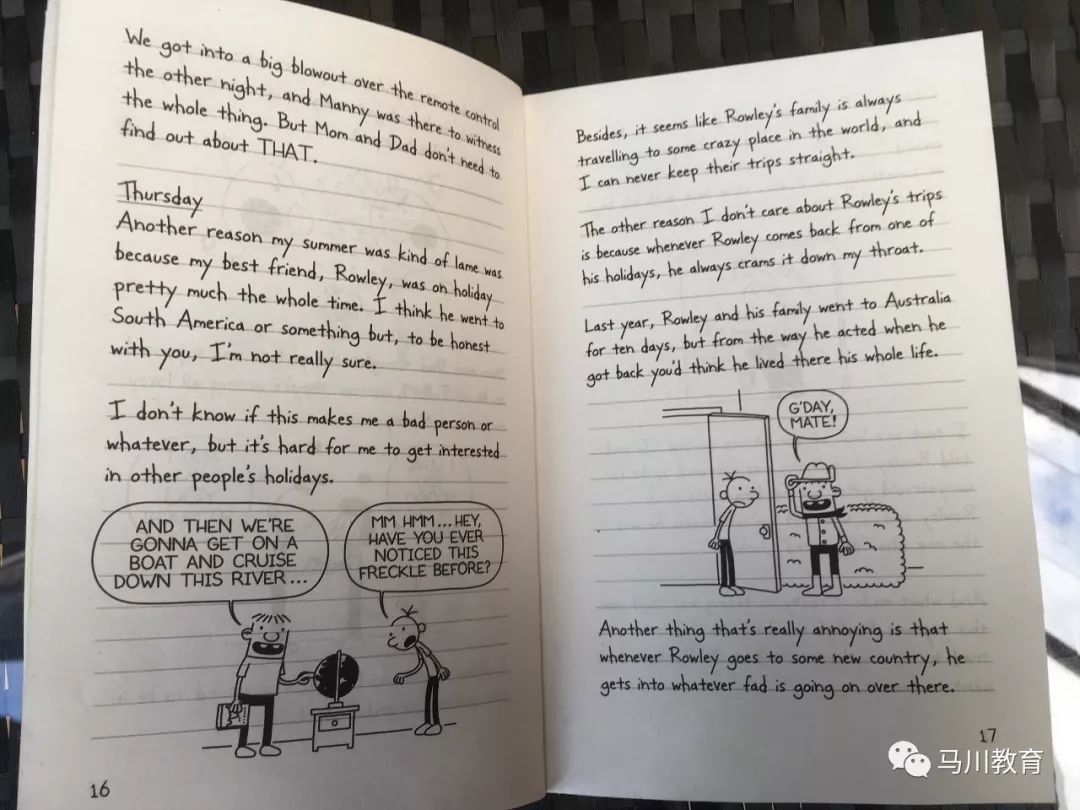 We got into a big blowout over the remote control
the other night, and Manny was there to witness
the whole thing. But Mom and Dad don't need to
find out about THAT.
Thursday
Another reason my summer was kind of lame was
because my best friend, Rowley, was on holiday
pretty much the whole time. I think he went to
South America or something but, to be honest
with you, I'm not really sure.
I don't know if this makes me a bad person or
whatever, but it's hard for me to get interested
in other people's holidays.
AND THEN WE'RE
GONNA GET ON A
BOAT AND CRUISE
DOWN THIS RIVER...
MM HMM...HEY,
HAVE YOU EVER
NOTICED THIS
FRECKLE BEFORE?
16
Besides, it seems like Rowley's family is always
travelling to some crazy place in the world, and
I can never keep their trips straight.
The other reason I don't care about Rowley's trips
is because whenever Rowley comes back from one of
his holidays, he always crams it down my throat.
Last year, Rowley and his family went to Australia
for ten days, but from the way he acted when he
got back you'd think he lived there his whole life.
G'DAY,
MATE!
Another thing that's really annoying is that
whenever Rowley goes to some new country, he
gets into whatever fad is going on over there.
17
马川教育